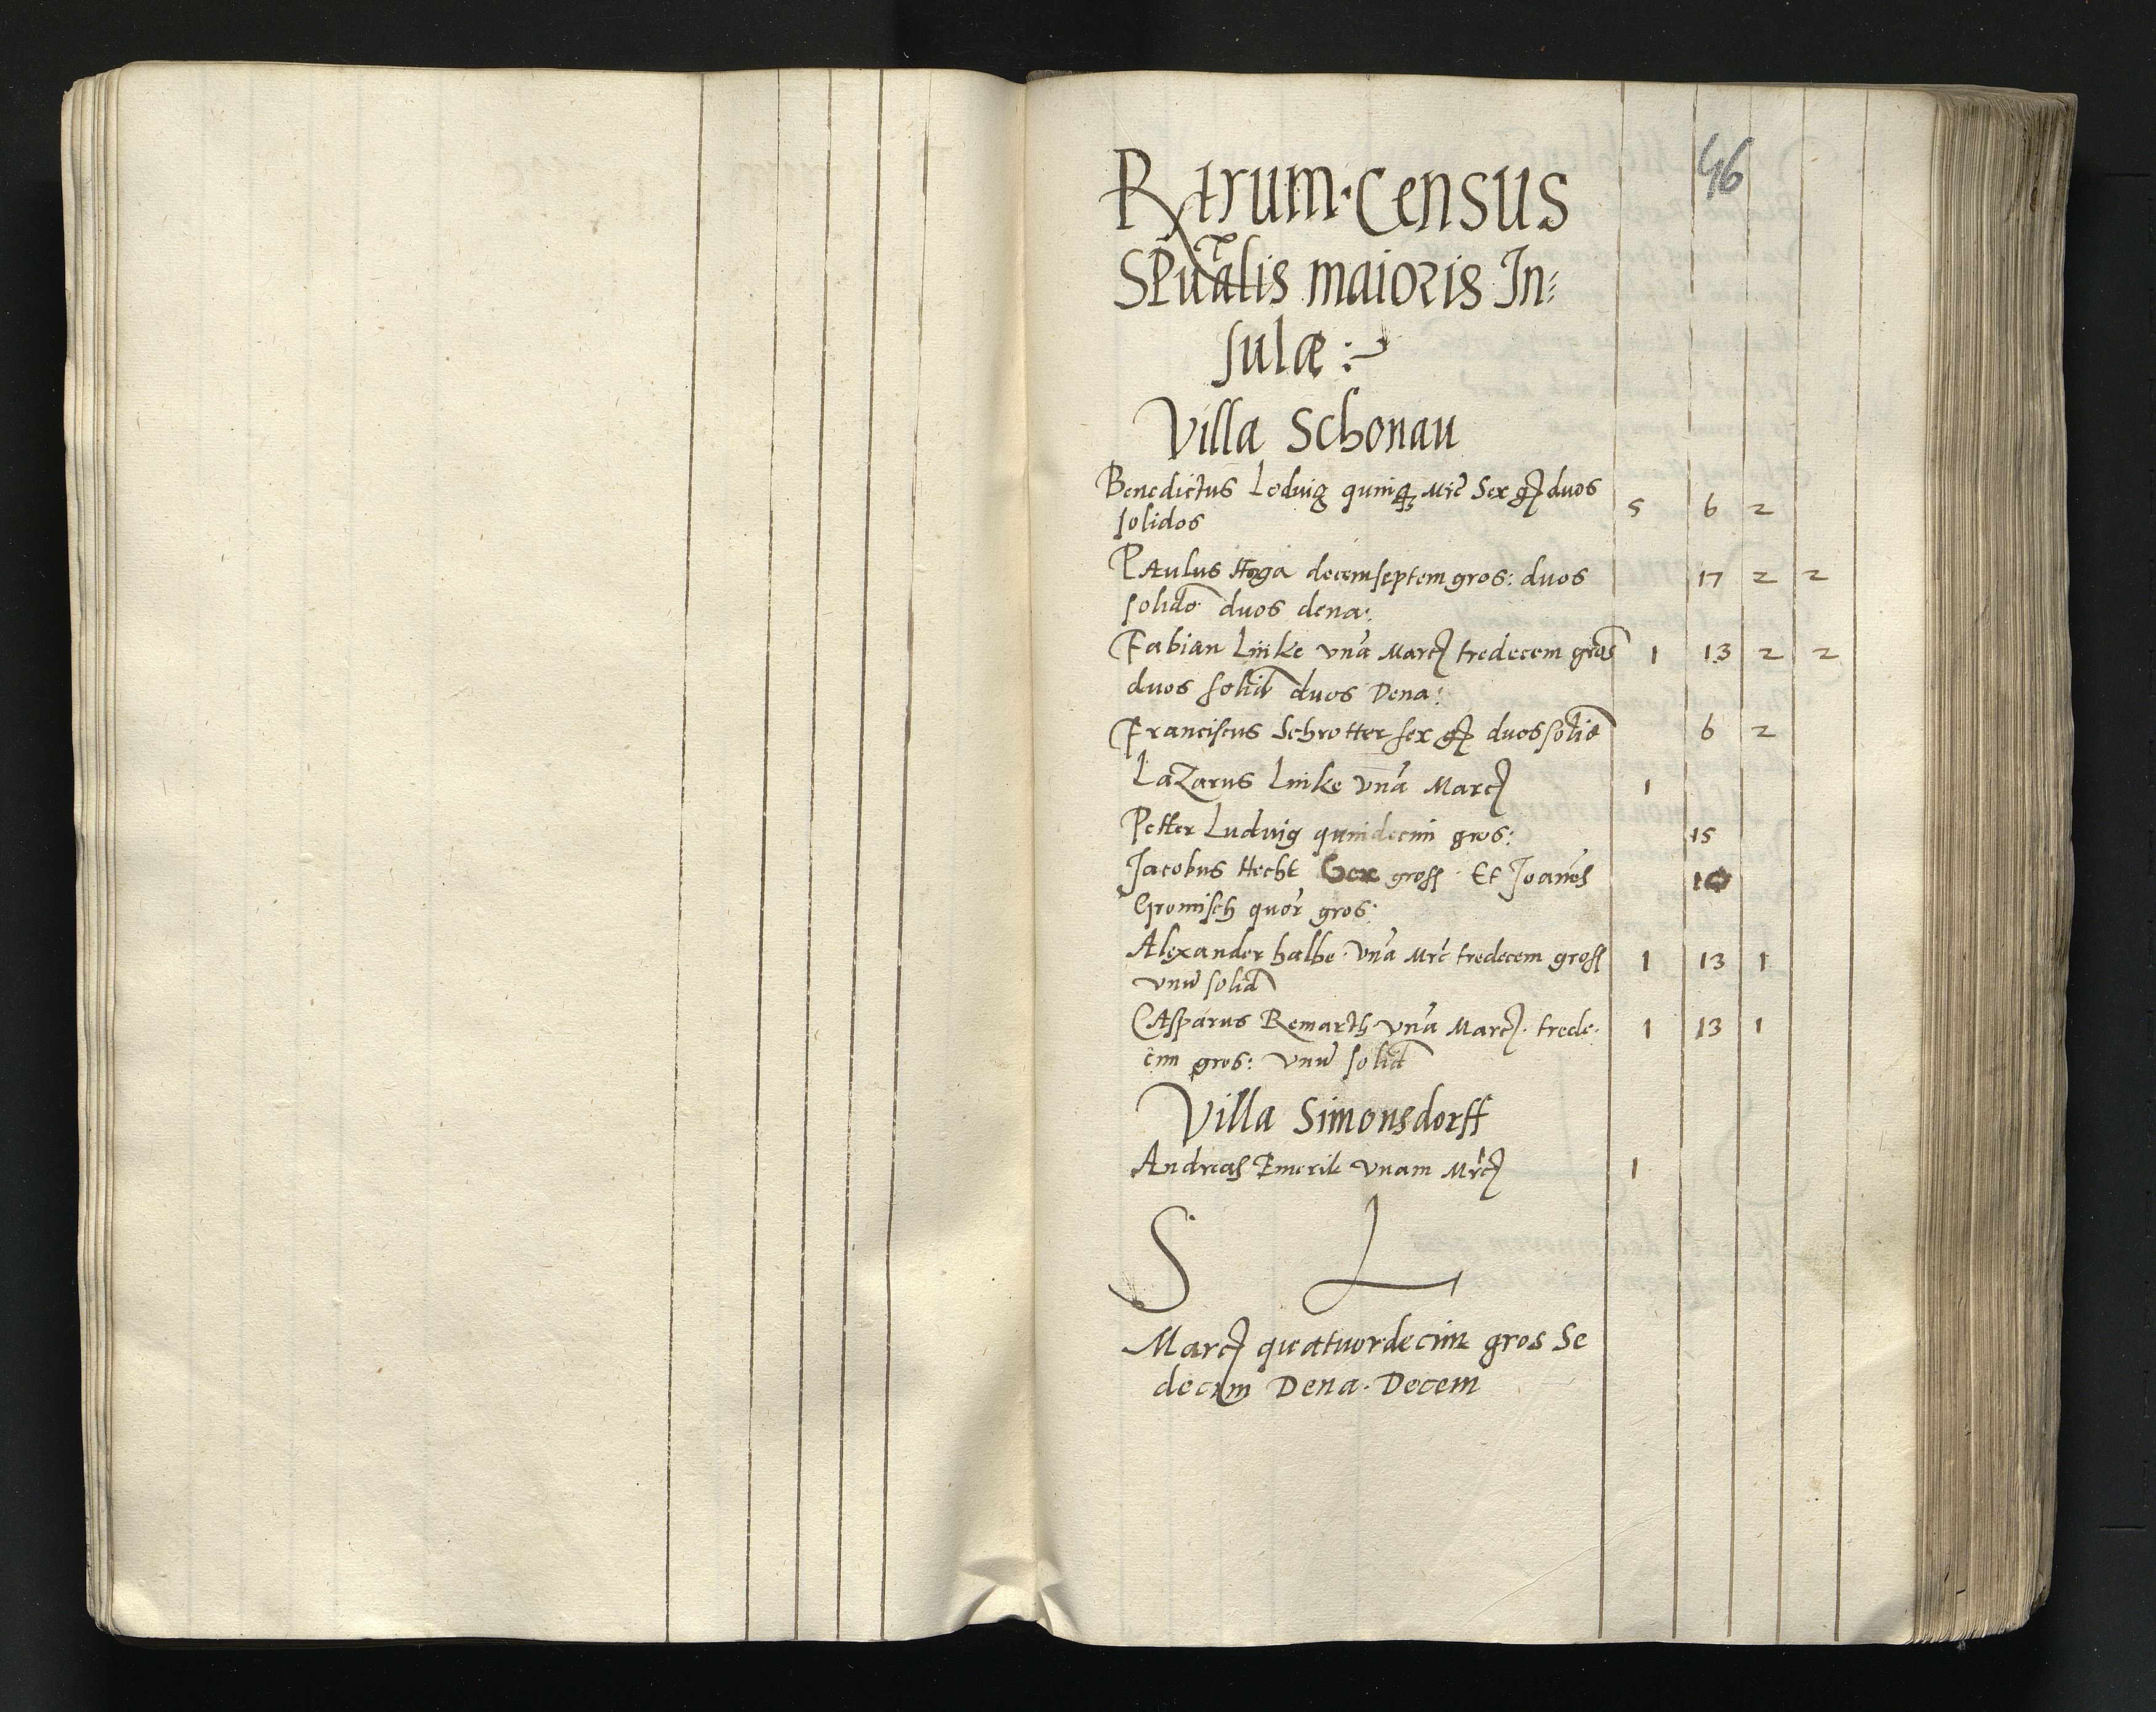 46
Rtrum · Census
SPualis maioris In-
sulæ :
Villa Schonau
Benedictus Lodvig quinq Mrc Sex g duos 5 6 2
solidos
Paulus Hoga decemseptem gros: duos 17 2 2
solido duos dena:
Fabian Linke vna Marc tredecem gros 1 13 2 2
duos solid duos Dena:
Franciscus Schrotter sex g duos solid 6 2
Lazarus Linke vna Marc 1
Petter Ludvig quindecim gros: 15
Jacobus Hecht Sex gross · Et Joanes 10
Gromisch quor gros:
Alexander halbe · vna Mrc tredecem gross 1 13 1
vnu solid
Casparus Remarth vna Marc · trede- 1 13 1
cim gros: vnu solid
Villa Simonsdorff
Andreas Emerik vnam Mrc 1
S L
Marc quatuordecim gros Se
decim Dena · Decem